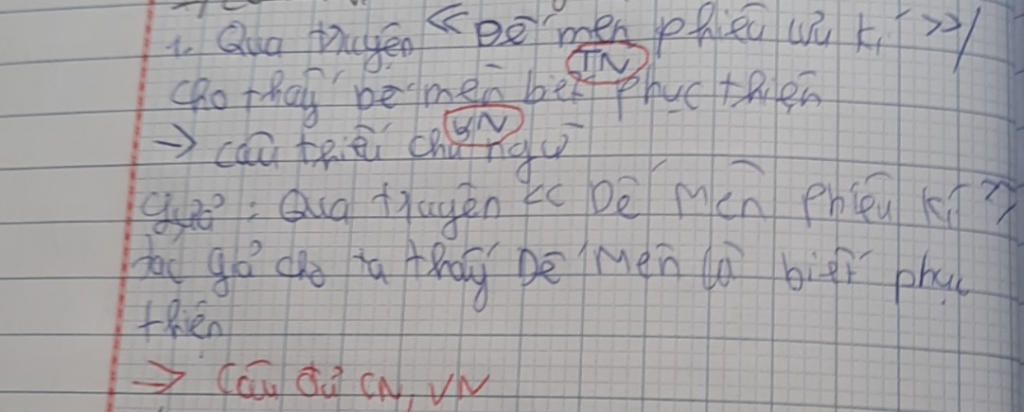 1. Qua truyện << Dế mèn phiêu lưu kí >>/
TN
cho thấy Dế mèn biết phục thiện
VN
→ câu thiếu chủ ngữ
Qua truyện << Dế Mèn phiêu kí >>
tác giả cho ta thấy Dế Mèn là biết phục
thiện
→ Câu đủ CN, VN